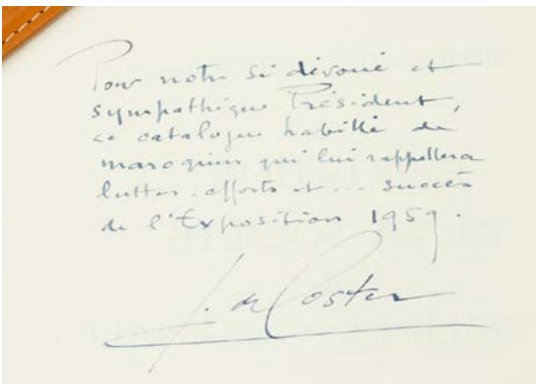 Pour notre si dévoué et
sympathique Président,
ce catalogue habillé de
maroquin qui lui rappellera
luttes, efforts et... succès
de l'Exposition 1959.
J. de Coster